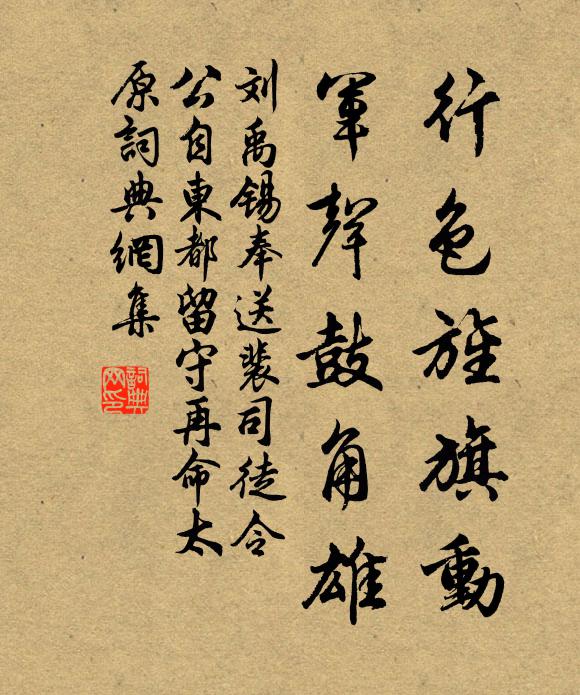 行色旌旗動
軍聲鼓角雄
刘禹锡奉送裴司徒令
公自東都留守再命太
原詞典網集
詞典
网印